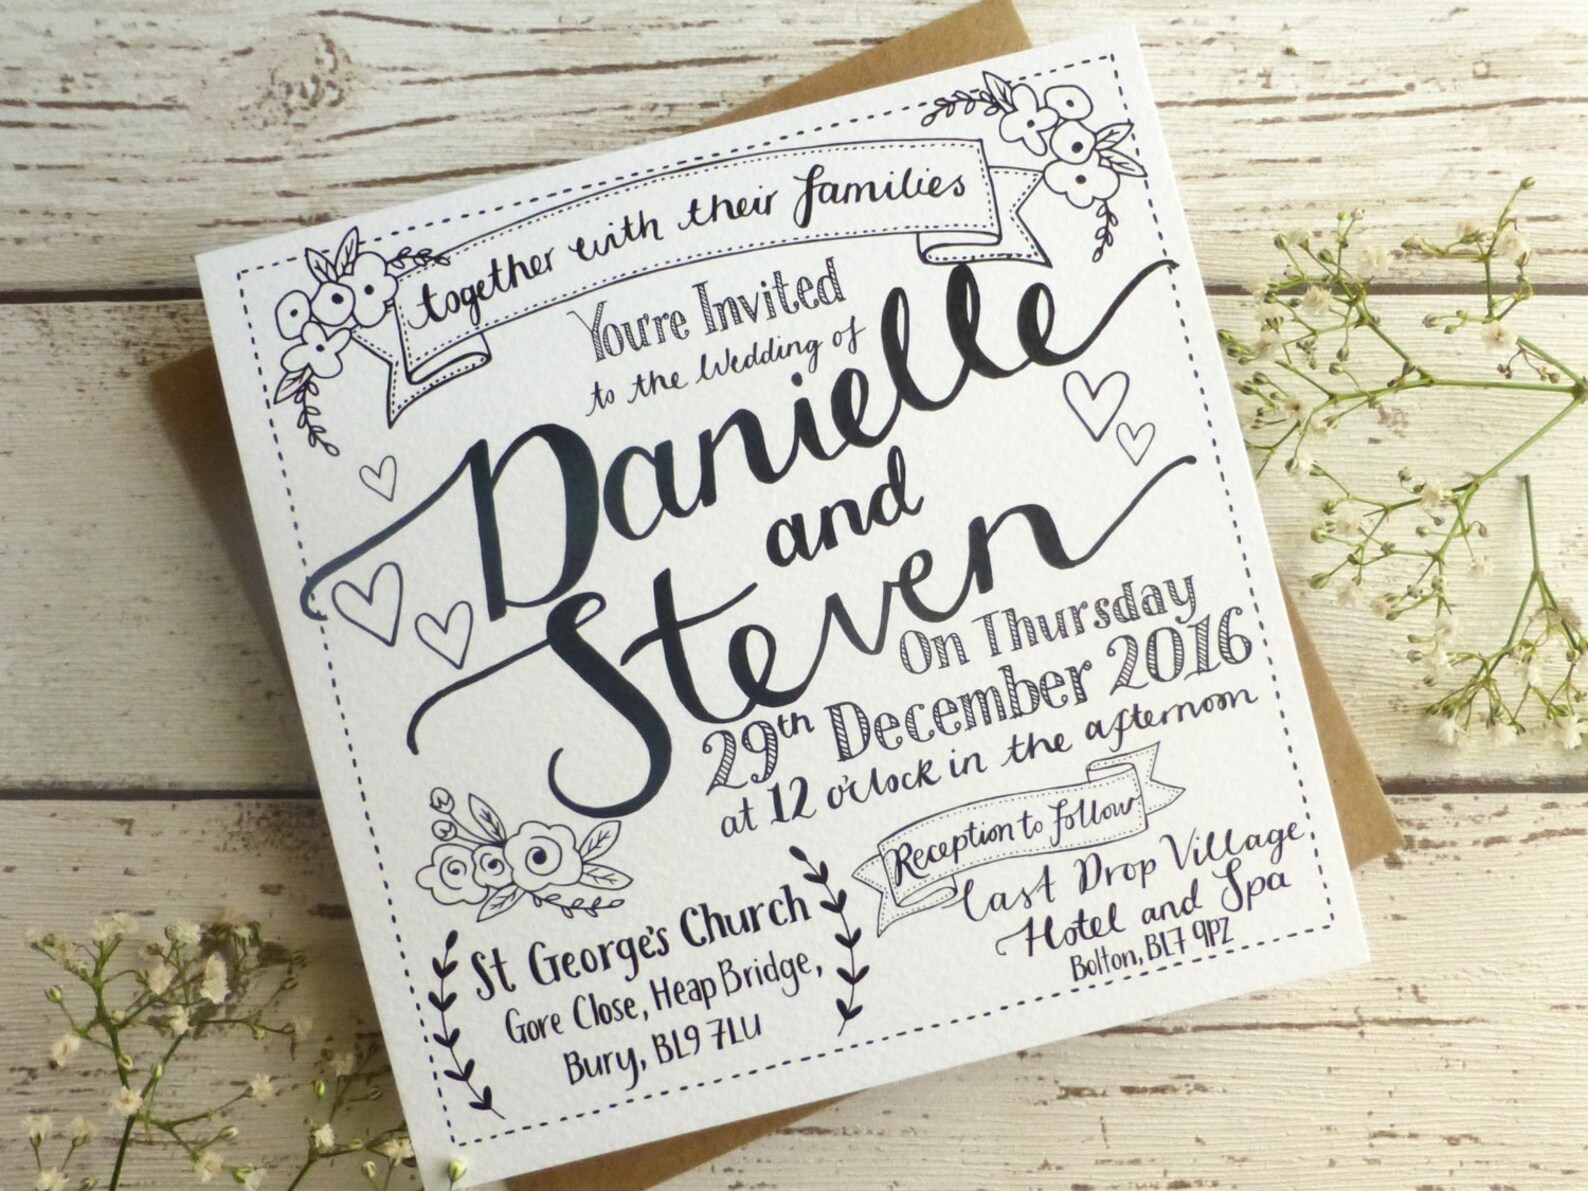 together with their families
You're Invited
to the Wedding of
Danielle
and
Steven
On Thursday
29th December 2016
at 12 o'clock in the afternoon
St George's Church
Gore Close, Heap Bridge,
Bury, BL9 7LU
Reception to follow:
Last Drop Village
Hotel and Spa
Bolton, BL7 9PZ